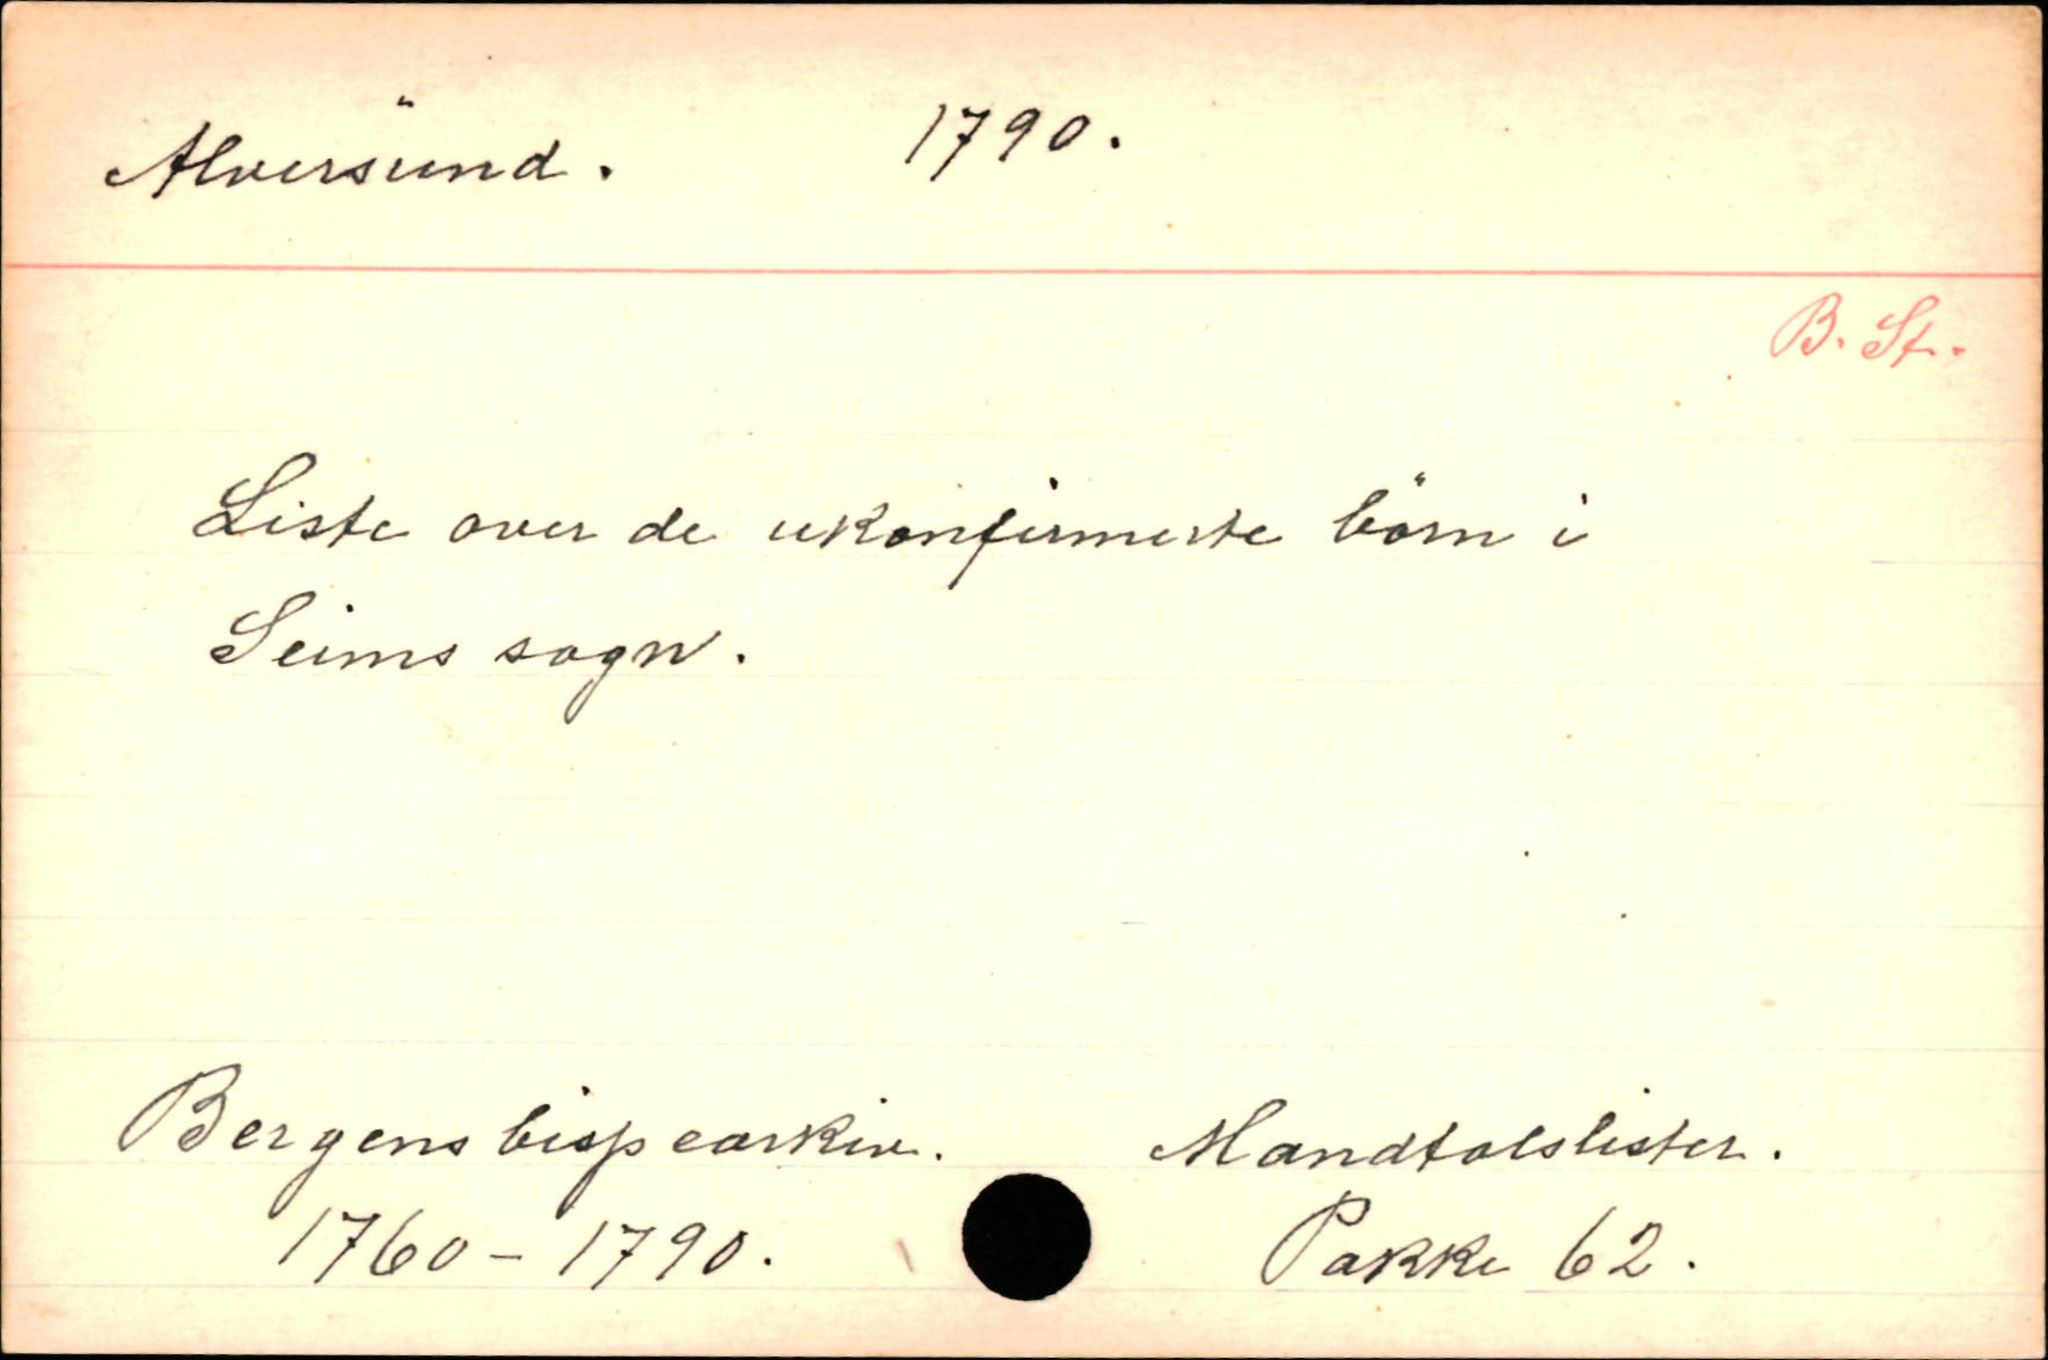 Alversünd. 1790.
B. St.
Liste over de ukonfirmerte börn i
Seims sogn.
Bergens bispearkiv. Mandtalslister.
1760-1790. Pakke 62.